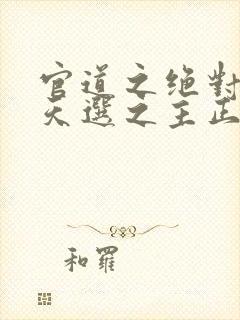 官道之绝對
天選之主正
和羅